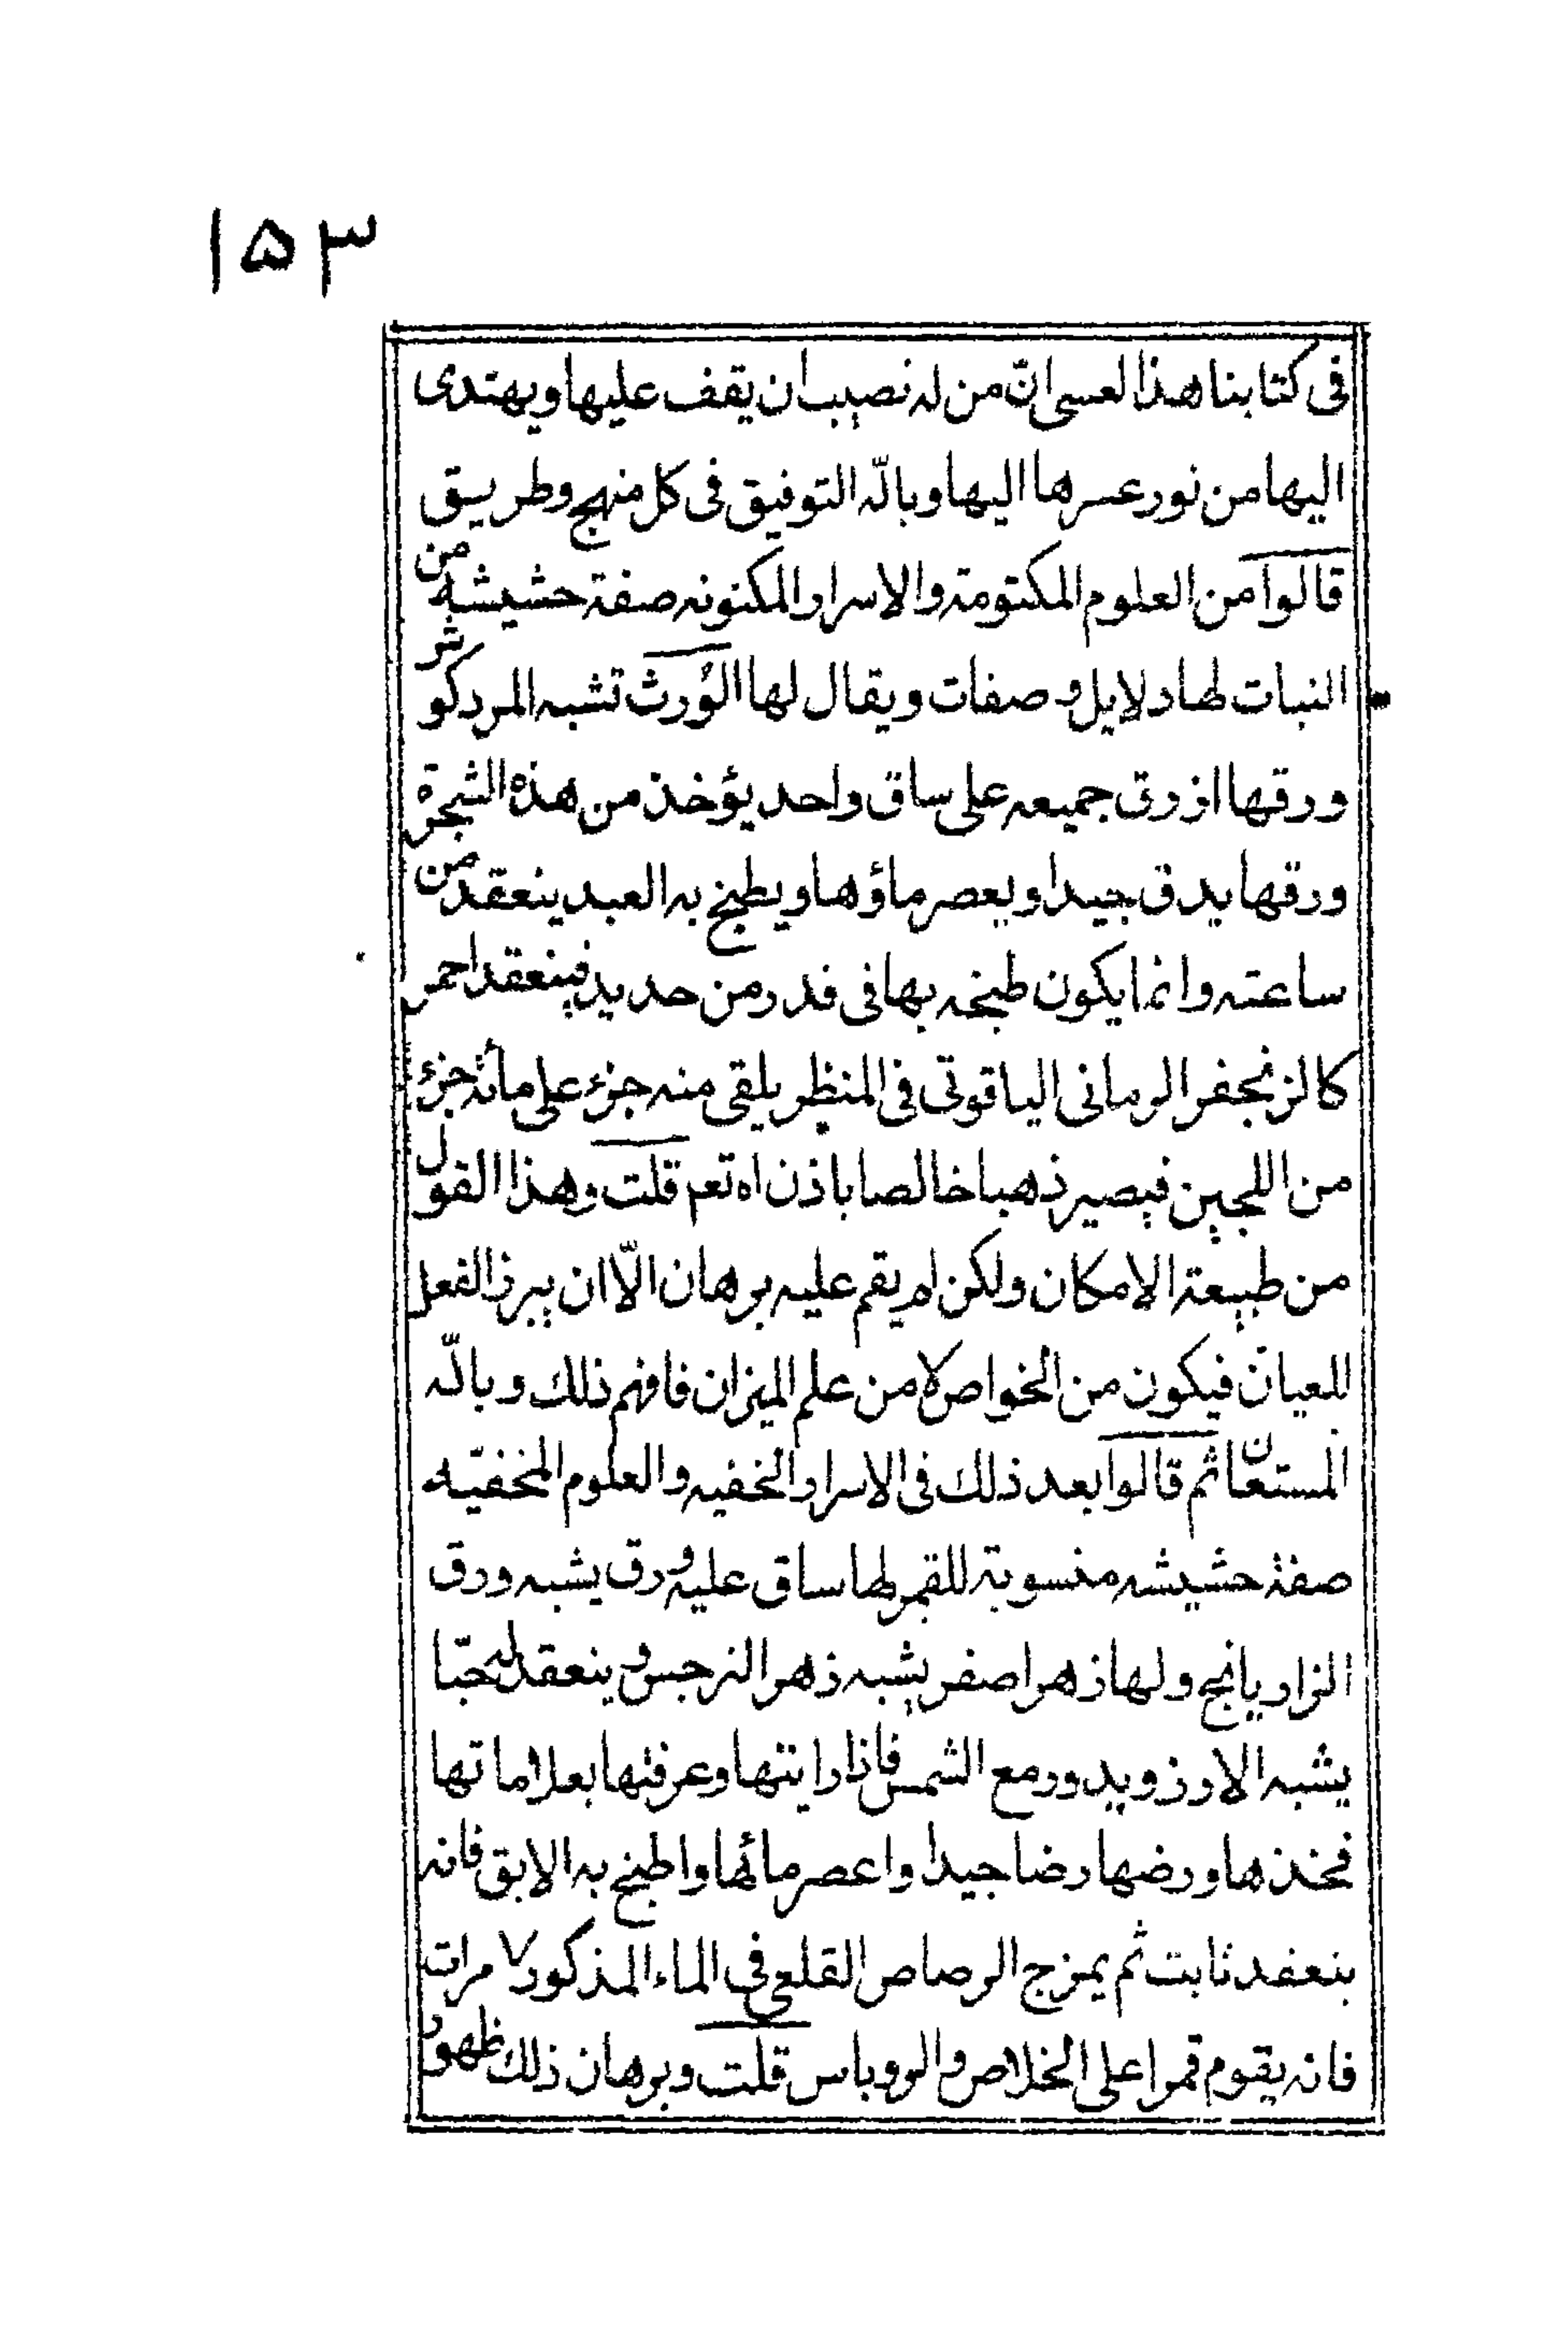 ١٥٣
فى كتابنا هذا لعسى انّ من له نصيب ان يقف عليها ويهتدى
اليها من نور عسرها اليها وبالله التوفيق فى كل منهج وطريق
قالوا من العلوم المكتومة والاسرار المكنونه صفة حشيشه من
النبات لها دلايل وصفات ويقال لها الوُرث تشبه المردكوش
ورقها ازرق جميعه على ساق واحد يؤخذ من هذه الشجرة
ورقها يدق جيدا ويعصر ماؤها ويطبخ به العبد ينعقد من
ساعته وانما يكون طبخه بها فى قدر من حديد فينعقد احمر
كالزنجفر الرمانى الياقوتى فى المنظر يلقى منه جزء على مأئة جزء
من اللجين فيصير ذهبا خالصا باذن اه تعم قلت وهذا القول
من طبيعة الامكان ولكن لم يقم عليه برهان الّا ان يبرز الفعل
للعيان فيكون من الخواص لا من علم الميزان فافهم ذلك وبالله
المستعان ثم قالوا بعد ذلك فى الاسرار الخفيه والعلوم المخفيّه
صفة حشيشه منسوبة للقمر لها ساق عليه ورق يشبه ورق
الزاويانج ولها زهر اصفر يشبه زهر النرجس و ينعقد له حبّا
يشبه الاورز ويدور مع الشمس فاذا رايتها وعرفتها بعلاماتها
فخذها ورضها رضا جيدا واعصر مائها واطبخ به الابق فانه
ينعقد ثابت ثم يمزج الرصاص القلعى فى الماء المذكور ٧ مرات
فانه يقوم قمرا على الخلاص والروباس قلت وبرهان ذلك ظهور